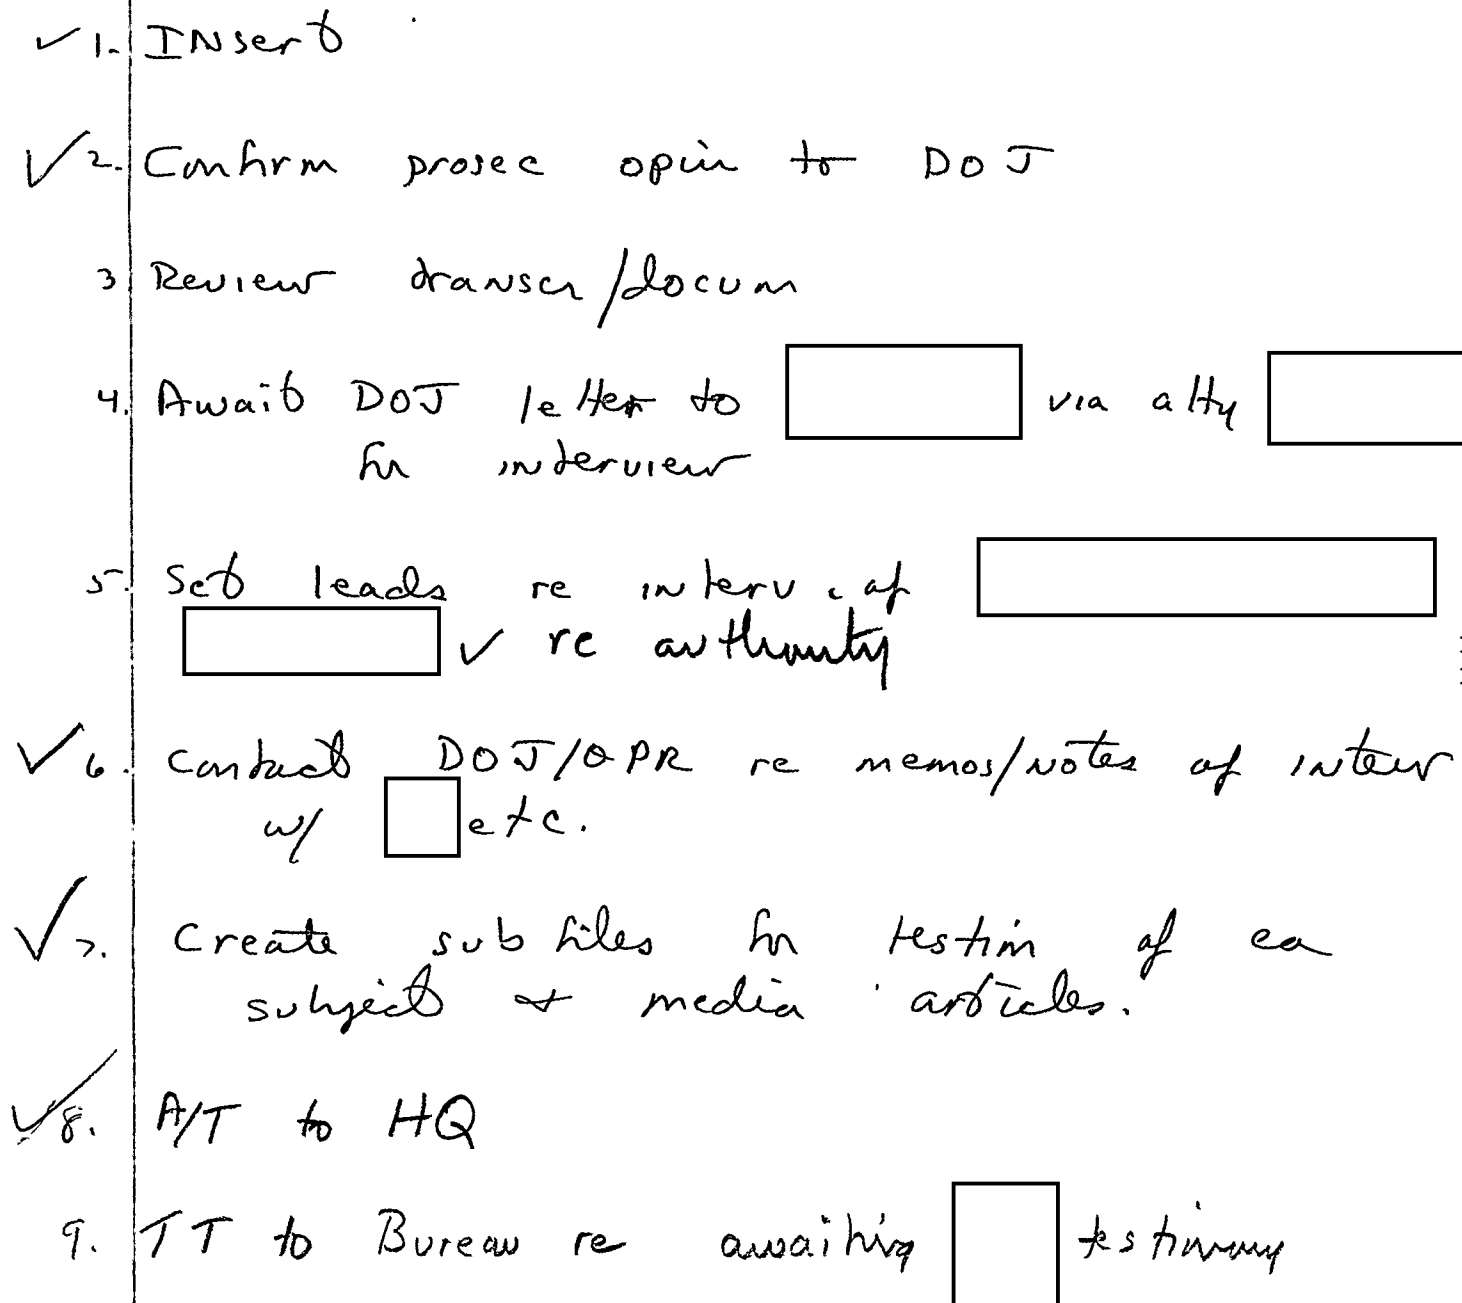 ✓ 1. Insert
✓ 2. Confirm prosec opin to DOJ
3 Review transcr/docum
4. Await DOJ letter to via atty
for interview
5. Set leads re interv. of
✓ re authority
✓ 6. Contact DOJ/OPR re memos/notes of interv
w/ etc.
✓ 7. Create sub files for testim of ea
subject + media articles.
✓ 8. A/T to HQ
9. TT to Bureau re awaiting testimony